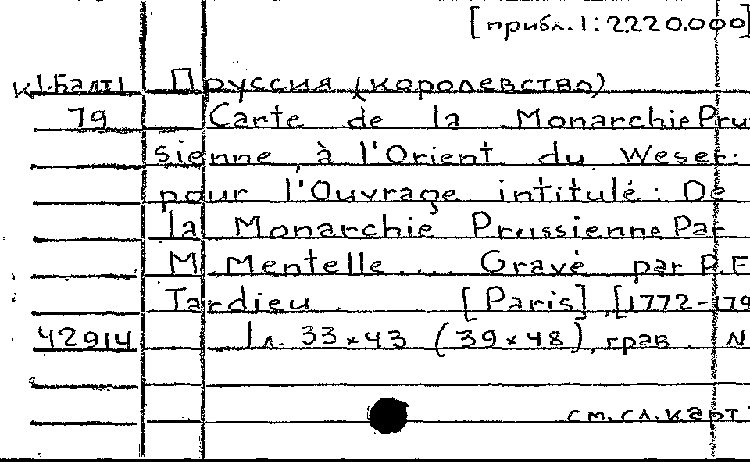 [прибл. 1:2220.000]
К 1-Балт1 Пруссия (королевство)
79 Carte de la Monarchie Pru
sienne, à l'Orient du Weser:
pour l'Ouvrage intitulé: De
la Monarchie Prussienne Par
M. Mentelle.... Gravé par P.F
Tardieu. [Paris], [1772-179
42914 1л. 33×43 (39×48), грав. N
см. сл. карт